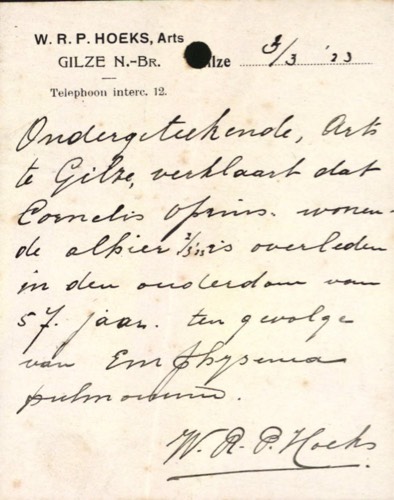 W. R. P. HOEKS, Arts
GILZE N.-BR. Gilze 3/3 '23
Telephoon interc. 12.
Ondergeteekende, Arts
te Gilze, verklaart dat
Cornelis Oprins. wonen-
de alhier is overleden
in den ouderdom van
57. jaar. ten gevolge
van Emphysema
pulmonum.
W. R. P. Hoeks